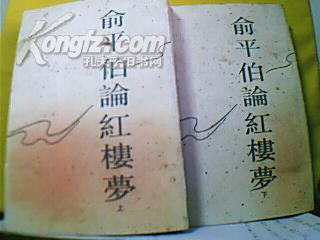 Kongfz.com
孔夫子旧书网
俞平伯論紅樓夢
上
俞平伯論紅樓夢
下